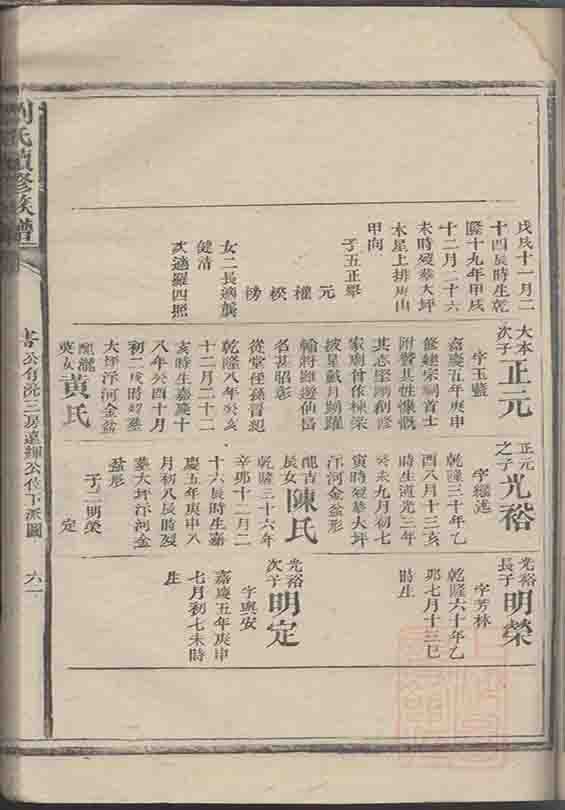 戊戌十一月二
十四辰時生乾
隆十九年甲戌
十二月二十六
未時歿葬大坪
木星上排庚山
甲向
子五正舉
元
權
校
榜
女二長適龔
健清
次適羅四照
大本
次子
正元
字玉藍
嘉慶五年庚申
修建宗祠首士
附贊其性慷慨
其志堅剛創修
家廟曾作棟梁
披星戴月踴躍
輸將雖遊仙島
名甚昭彰
從堂侄孫晋起
乾隆八年癸亥
十二月二十二
亥時生嘉慶十
八年癸酉十月
初二戌時歿葬
大坪洋河金盆
形
龍
英女
黃氏
正元
之子
光裕
字繼述
乾隆三十年乙
酉八月十三亥
時生道光三年
癸未九月初七
寅時歿葬大坪
洋河金盆形
龍吉
長女
陳氏
乾隆三十六年
辛卯十二月二
十六辰時生嘉
慶五年庚申八
月初八辰時歿
葬大坪洋河金
盆形
子二明榮
定
光裕
長子
明榮
字芳林
乾隆六十年乙
卯七月十三巳
時生
光裕
次子
明定
字興安
嘉慶五年庚申
七月初七未時
生
劉氏續修族譜
書公旬洗三房遠輝公位下派圖
六一